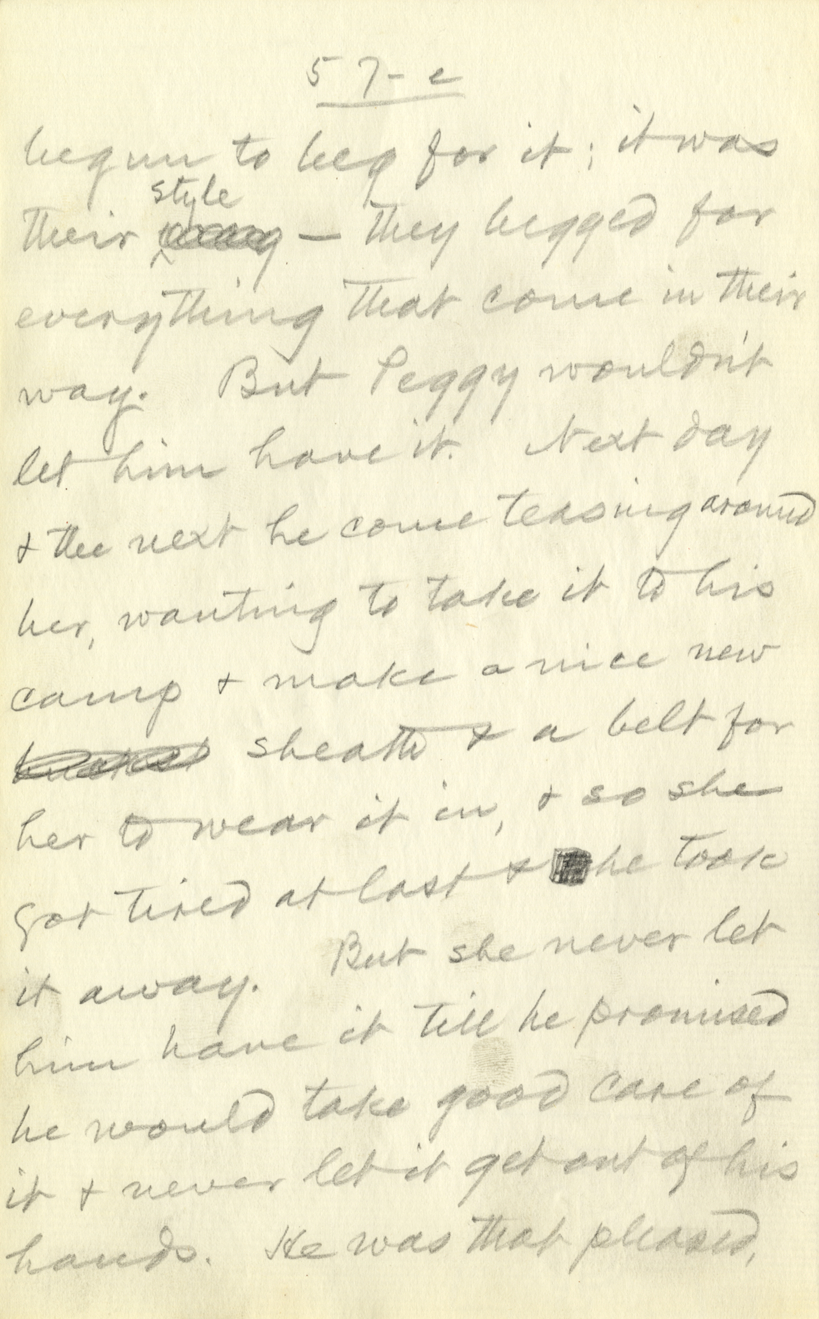 57-c
begun to beg for it; it was
style
their — they begged for
everything that come in their
way. But Peggy wouldn't
let him have it. Next day
& the next he come teasing around
her, wanting to take it to his
camp & make a nice new
sheath & a belt for
her to wear it in, & so she
got tired at last & he took
it away. But she never let
him have it till he promised
he would take good care of
it & never let it get out of his
hands. He was that pleased,